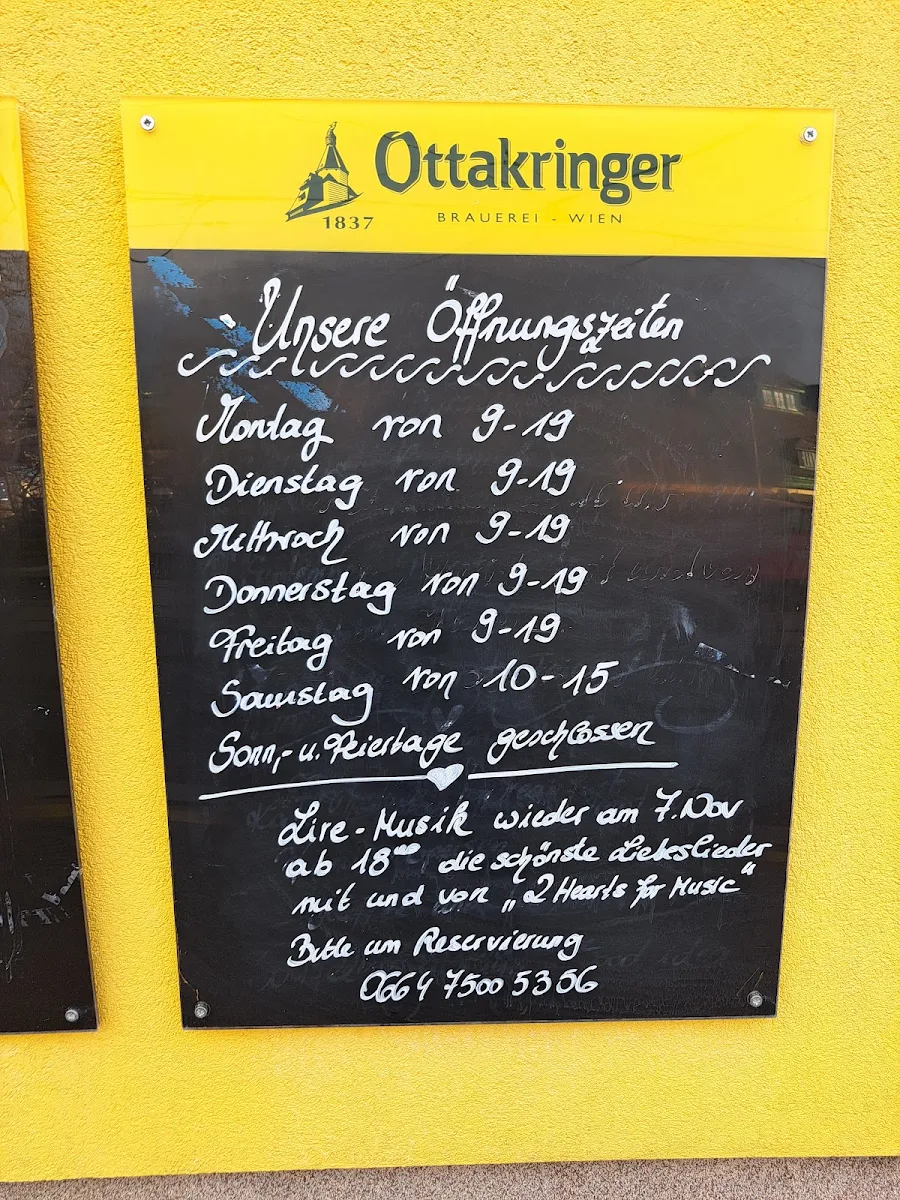 Ottakringer
1837
BRAUEREI - WIEN
Unsere Öffnungszeiten
Montag von 9-19
Dienstag von 9-19
Mittwoch von 9-19
Donnerstag von 9-19
Freitag von 9-19
Samstag von 10-15
Sonn,- u. Feiertage geschlossen
Live-Musik wieder am 7. Nov
ab 18°° die schönste Liebeslieder
mit und von „2 Hearts for Music"
Bitte um Reservierung
0664 7500 5306